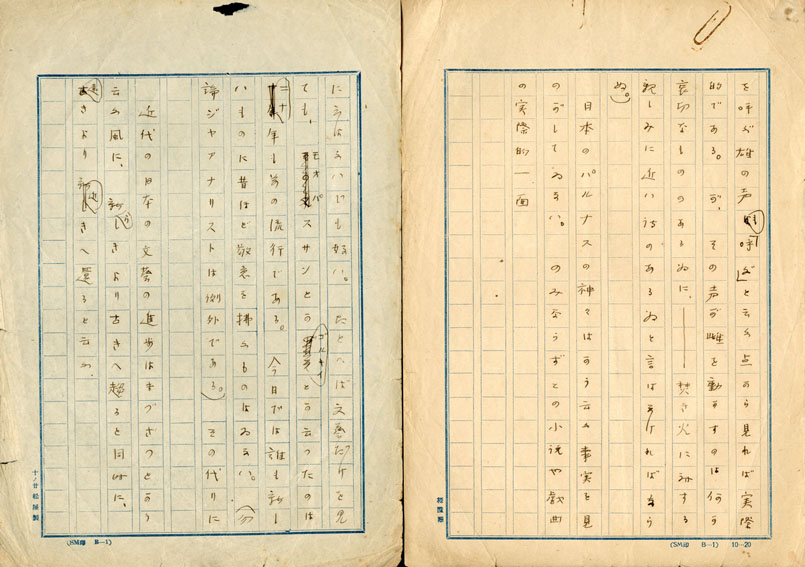 を呼ぶ雄の声も「呼ぶ」と云ふ点から見れば実際
的である。が、その声が雌を動かすのは何か
哀切なもののあるゐに、――焚き火に対する
親しみに近いもののあるゐと言はなければなら
ぬ。
日本のパルナスの神々はかう云ふ事実を見
のがしてゐない。のみならずどの小説や戯曲
の実際的一面
(SM印 B-1) 10-20
に云はないでも好い。たとへば文藝だけを見
ても、モオパスサンとかゴルキイとか云つたのは
二十年も前の流行である。今日では誰も新し
いものに昔ほど敬意を拂ふものはゐない。(勿
論ジヤアナリストは例外である。)その代りに
近代の日本の文藝の進歩はまづざつとかう
云ふ風に、新しきより古きへ趨ると同時に、
遠きより近きへ還ると云ふ
十ノ廿松屋製
(SM印 B-1)